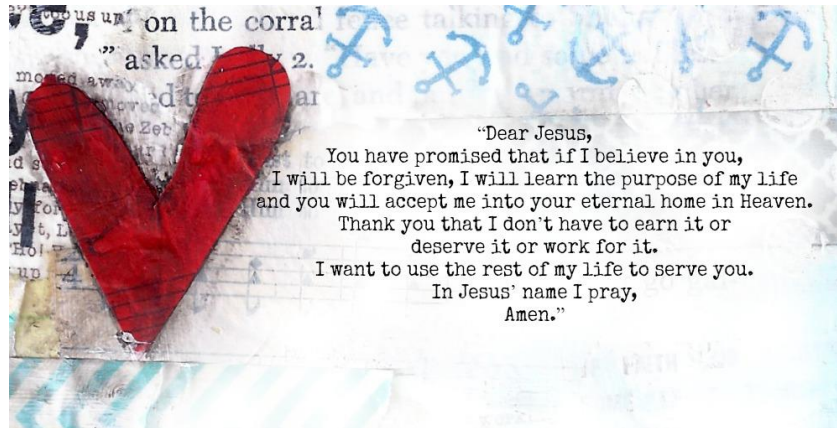 on the corral
asked
2.
moved away
"Dear Jesus,
You have promised that if I believe in you,
I will be forgiven, I will learn the purpose of my life
and you will accept me into your eternal home in Heaven.
Thank you that I don't have to earn it or
deserve it or work for it.
I want to use the rest of my life to serve you.
In Jesus' name I pray,
Amen."